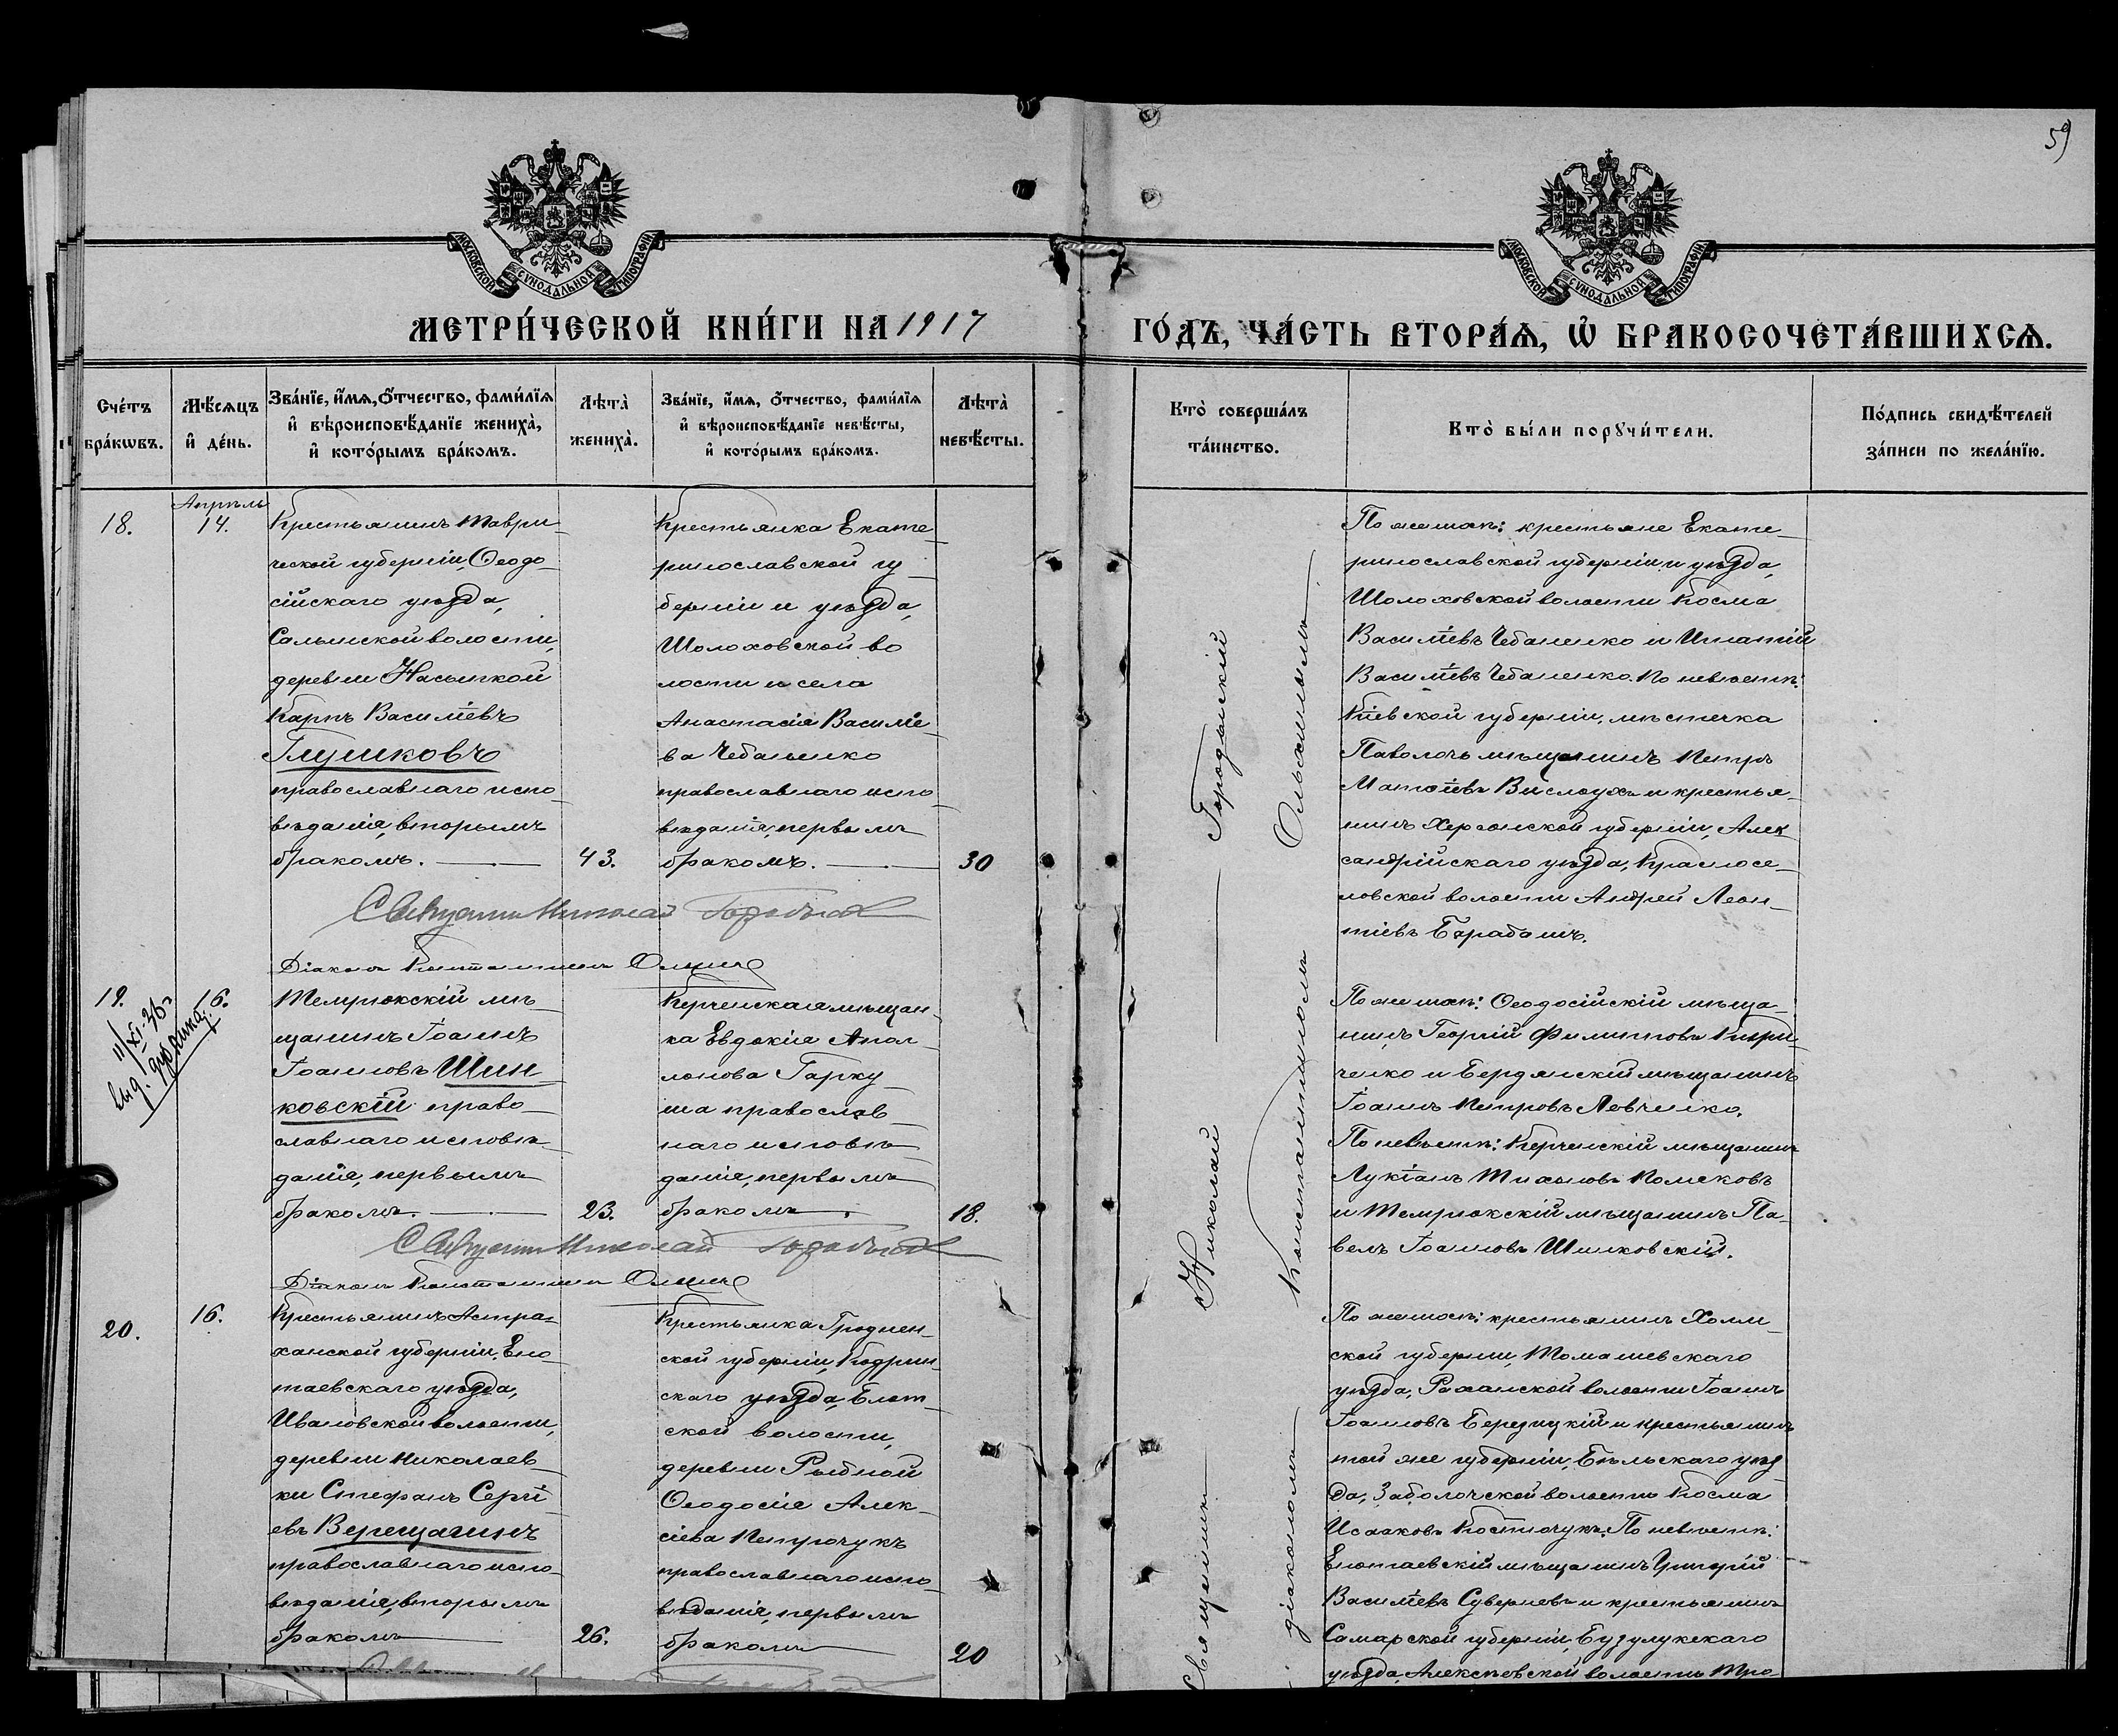 59
МОСКОВСКОЙ СУНОДАЛЬНОЙ ТИПОГРАФІИ
МОСКОВСКОЙ СУНОДАЛЬНОЙ ТИПОГРАФІИ
МЕТРИ́ЧЕСКОЙ КНИ́ГИ НА 1917
ГО́ДЪ, ЧА́СТЬ ВТОРА́Ѧ, Ѡ҆ БРАКОСОЧЕТА́ВШИХСѦ.
Сче́тъ бра́кѡвъ.
Мѣ́сѧцъ и҆ де́нь.
Зва́нїе, и҆́мѧ, ѻ҆́тчество, фами́лїѧ
и҆ вѣроисповѣ́данїе жениха̀,
и҆ кото́рымъ бра́комъ.
Лѣта̀ жениха̀.
Зва́нїе, и҆́мѧ, ѻ҆́тчество, фами́лїѧ
и҆ вѣроисповѣ́данїе невѣ́сты,
и҆ кото́рымъ бра́комъ.
Лѣта̀ невѣ́сты.
Кто̀ соверша́лъ та́инство.
Кто̀ бы́ли порꙋчи́тели.
По́дпись свидѣ́телей за́писи по жела́нїю.
18.
Апрѣль
14.
Крестьянинъ Таври-
ческой губерніи, Ѳеодо-
сійскаго уѣзда,
Салынской волости,
деревни Насыпкой
Карпъ Василіевъ
Глушковъ
православнаго испо-
вѣданія, вторымъ
бракомъ.
43.
Крестьянка Екате-
ринославской гу-
берніи и уѣзда,
Шолоховской во
лости и села
Анастасія Василіе-
ва Чебаненко
православнаго испо-
вѣданія, первымъ
бракомъ.
30
Священникъ Николай Городыскій
Діаконъ Константинъ
По жениху: крестьяне Екате-
ринославской губерніи и уѣзда,
Шолоховской волости Косма
Василіевъ Чебаненко и Игнатій
Василіевъ Чебаненко. По невѣстѣ:
Кіевской губерніи, мѣстечка
Паволочь мѣщанинъ Петръ
Матѳіевъ Вислоухъ и крестья-
нинъ Херсонской губерніи, Алек-
сандрійскаго уѣзда, Красносе-
ловской волости Андрей Леон-
тіевъ Барабашъ.
19.
11/XI 36 г
выд. дубликат
16.
Темрюкскій мѣ-
щанинъ Іоаннъ
Іоанновъ Шин
ковскій право-
славнаго исповѣ-
данія, первымъ
бракомъ.
23.
Керченская мѣщан-
ка Евдокія Апол-
лонова Гарку-
ша православ-
наго исповѣ-
данія, первымъ
бракомъ.
18.
Священникъ Николай Городыскій
Діаконъ Константинъ
По жениху: Ѳеодосійскій мѣща-
нинъ Георгій Филипповъ Кири-
ченко и Бердянскій мѣщанинъ
Іоаннъ Петровъ Левченко.
По невѣстѣ: Керченскій мѣщанинъ
Лукіанъ Тихоновъ
и Темрюкскій мѣщанинъ Па-
велъ Іоанновъ Шинковскій.
20.
16.
Крестьянинъ Астра-
ханской губерніи, Ено-
таевскаго уѣзда,
Ивановской волости,
деревни Николаев-
ки Стефанъ Сергі
евъ Верещагинъ
православнаго испо-
вѣданія, вторымъ
бракомъ
26.
Крестьянка Гроднен-
ской губерніи, Кобрин-
скаго уѣзда, Блот-
ской волости,
деревни Рыбной
Ѳеодосія Алек-
сіева Петрочукъ
православнаго испо-
вѣданія, первымъ
бракомъ
20
По жениху: крестьянинъ Холм-
ской губерніи, Томашевскаго
уѣзда, Раханской волости Іоаннъ
Іоанновъ Березицкій и крестьянинъ
той же губерніи, Бѣльскаго уѣз
да, Заболочской волости Косма
Исааковъ Костючукъ. По невѣстѣ:
Енотаевскій мѣщанинъ Григорій
Василіевъ Суверневъ и крестьянинъ
Самарской губерніи, Бузулукскаго
уѣзда, Алексѣевской волости Тро-
Священникъ Николай Городыскій
діакономъ Константиномъ